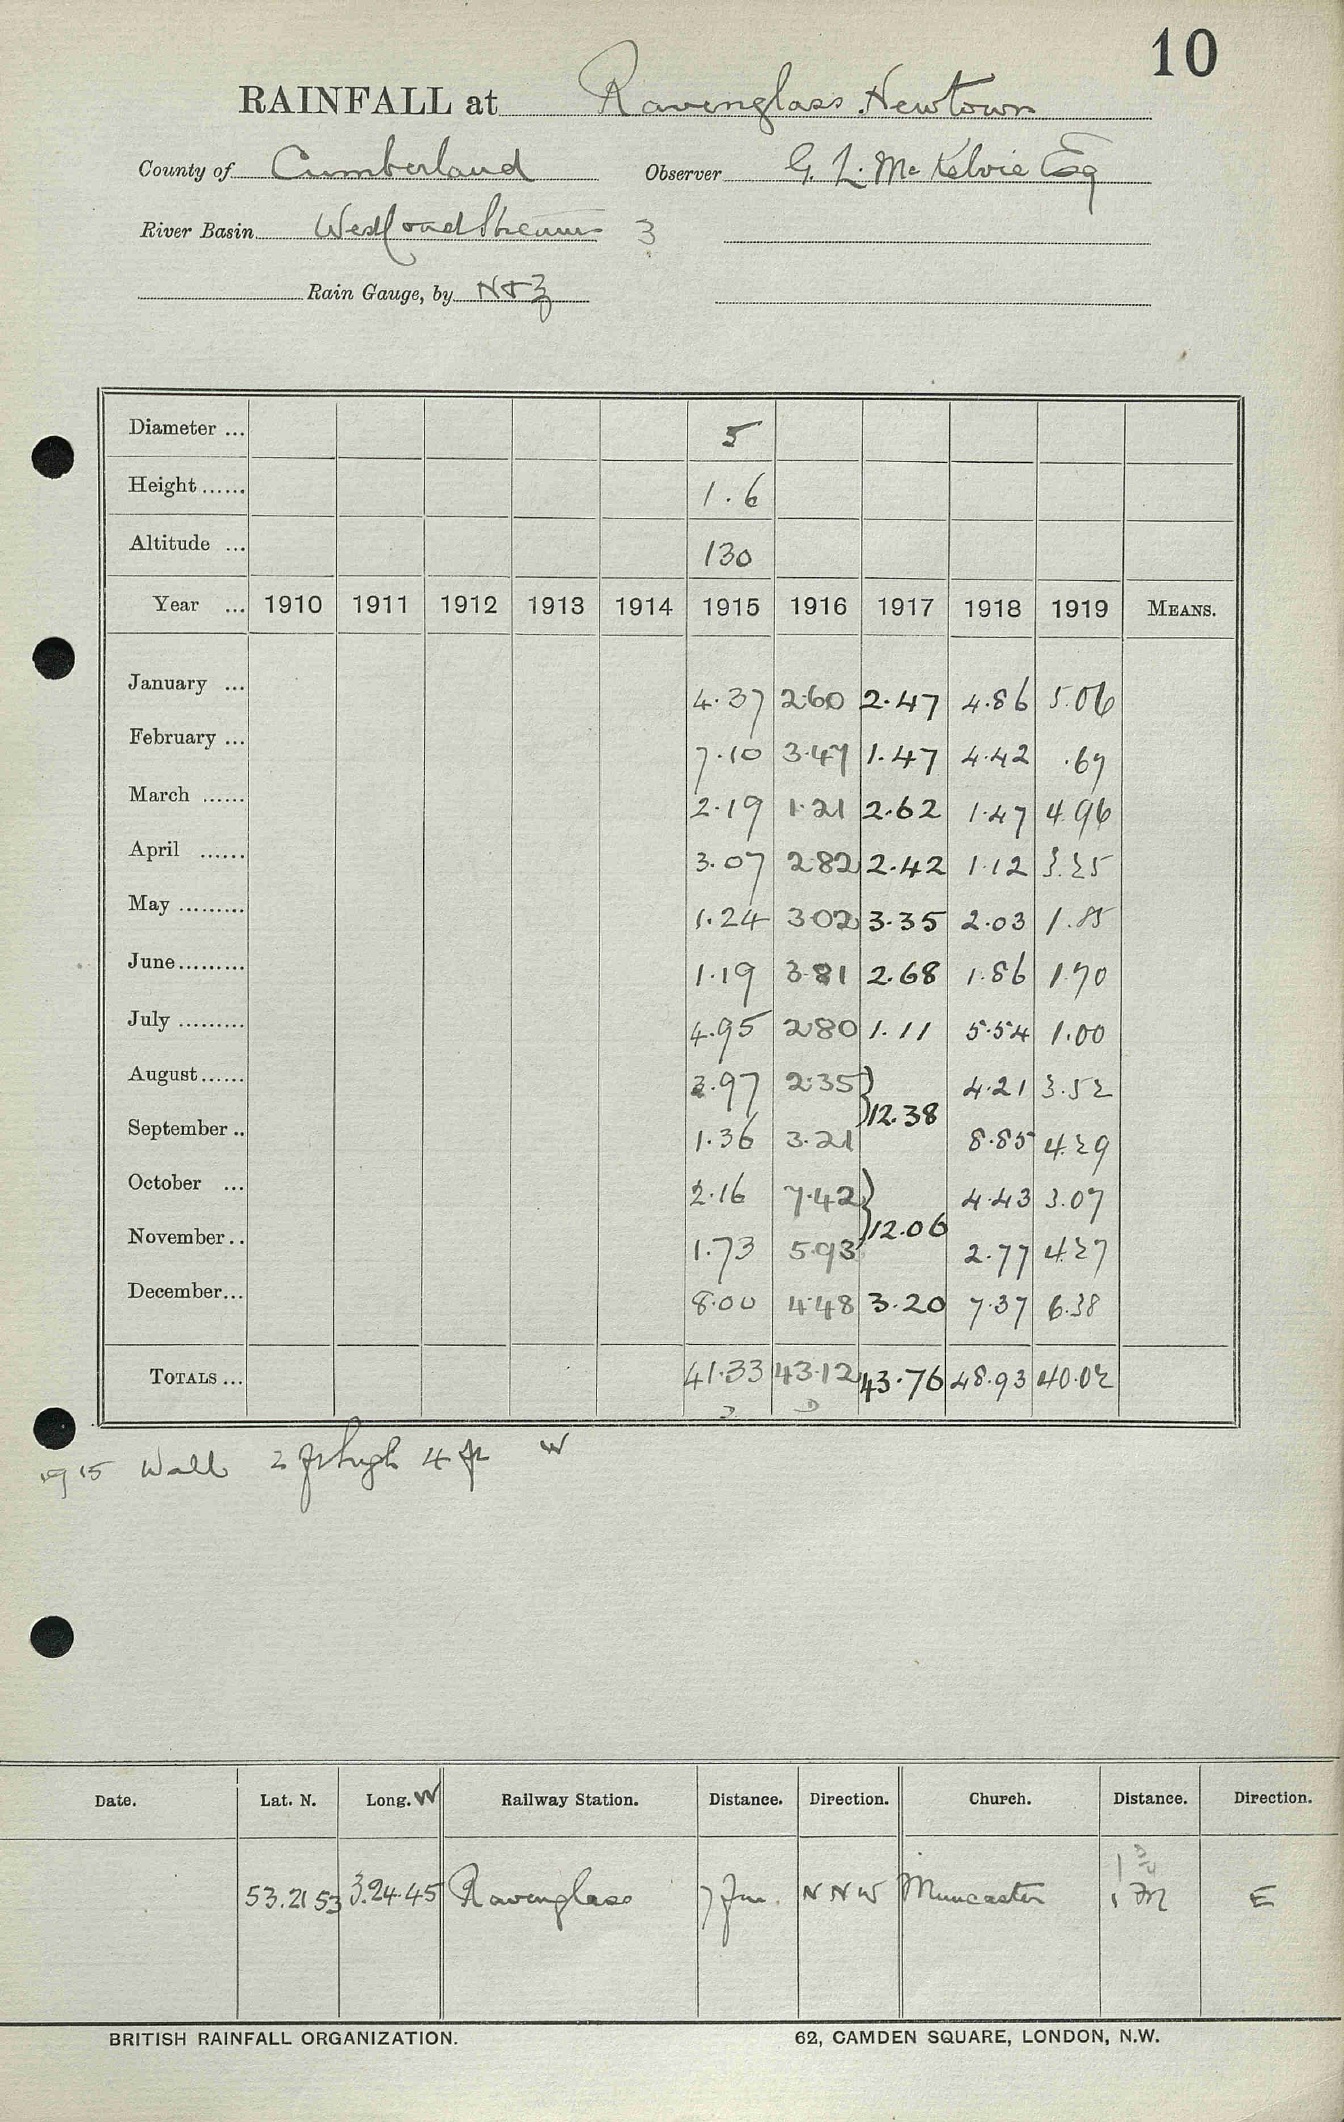 10
RAINFALL at Ravenglass. Newtown
County of Cumberland Observer G. L. Mc Kelvie Esq
River Basin West Coast Streams 3
Rain Gauge, by N & Z
Diameter ... 5
Height ...... 1.6
Altitude ... 130
Year ... 1910 1911 1912 1913 1914 1915 1916 1917 1918 1919 MEANS.
January ... 4.37 2.60 2.47 4.86 5.06
February ... 7.10 3.47 1.47 4.42 .67
March ...... 2.19 1.21 2.62 1.47 4.96
April ...... 3.07 2.82 2.42 1.12 3.25
May ......... 1.24 3.02 3.35 2.03 1.85
June......... 1.19 3.81 2.68 1.86 1.70
July ......... 4.95 2.80 1.11 5.54 1.00
August...... 3.97 2.35 } 4.21 3.52
12.38
September .. 1.36 3.21 8.85 4.29
October ... 2.16 7.42 } 4.43 3.07
12.06
November .. 1.73 5.93 2.77 4.27
December... 8.00 4.48 3.20 7.37 6.38
TOTALS ... 41.33 43.12 43.76 48.93 40.02
1915 Wall 2 ft high 4 ft W
Date. Lat. N. Long. W Railway Station. Distance. Direction. Church. Distance. Direction.
53.21 53 3.24.45 Ravenglass 7 fur. N N W Muncaster 1 E
BRITISH RAINFALL ORGANIZATION. 62, CAMDEN SQUARE, LONDON, N.W.